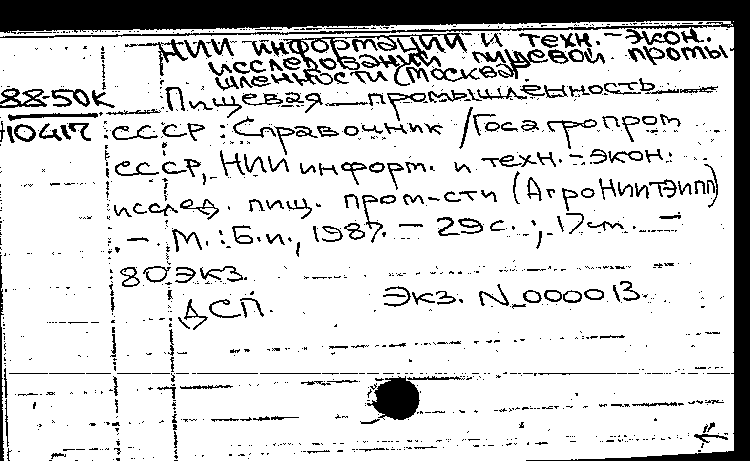 НИИ информации и техн.-экон.
исследований пищевой промы-
шленности (Москва).
88-50К Пищевая промышленность
10417 СССР : Справочник / Госагропром
СССР, НИИ информ. и техн.-экон.
исслед. пищ. пром-сти (АгроНИИТЭИПП)
.- М. : Б.и., 1987. - 29 с. ; 17 см. -
80 экз.
ДСП. Экз. N 000013.